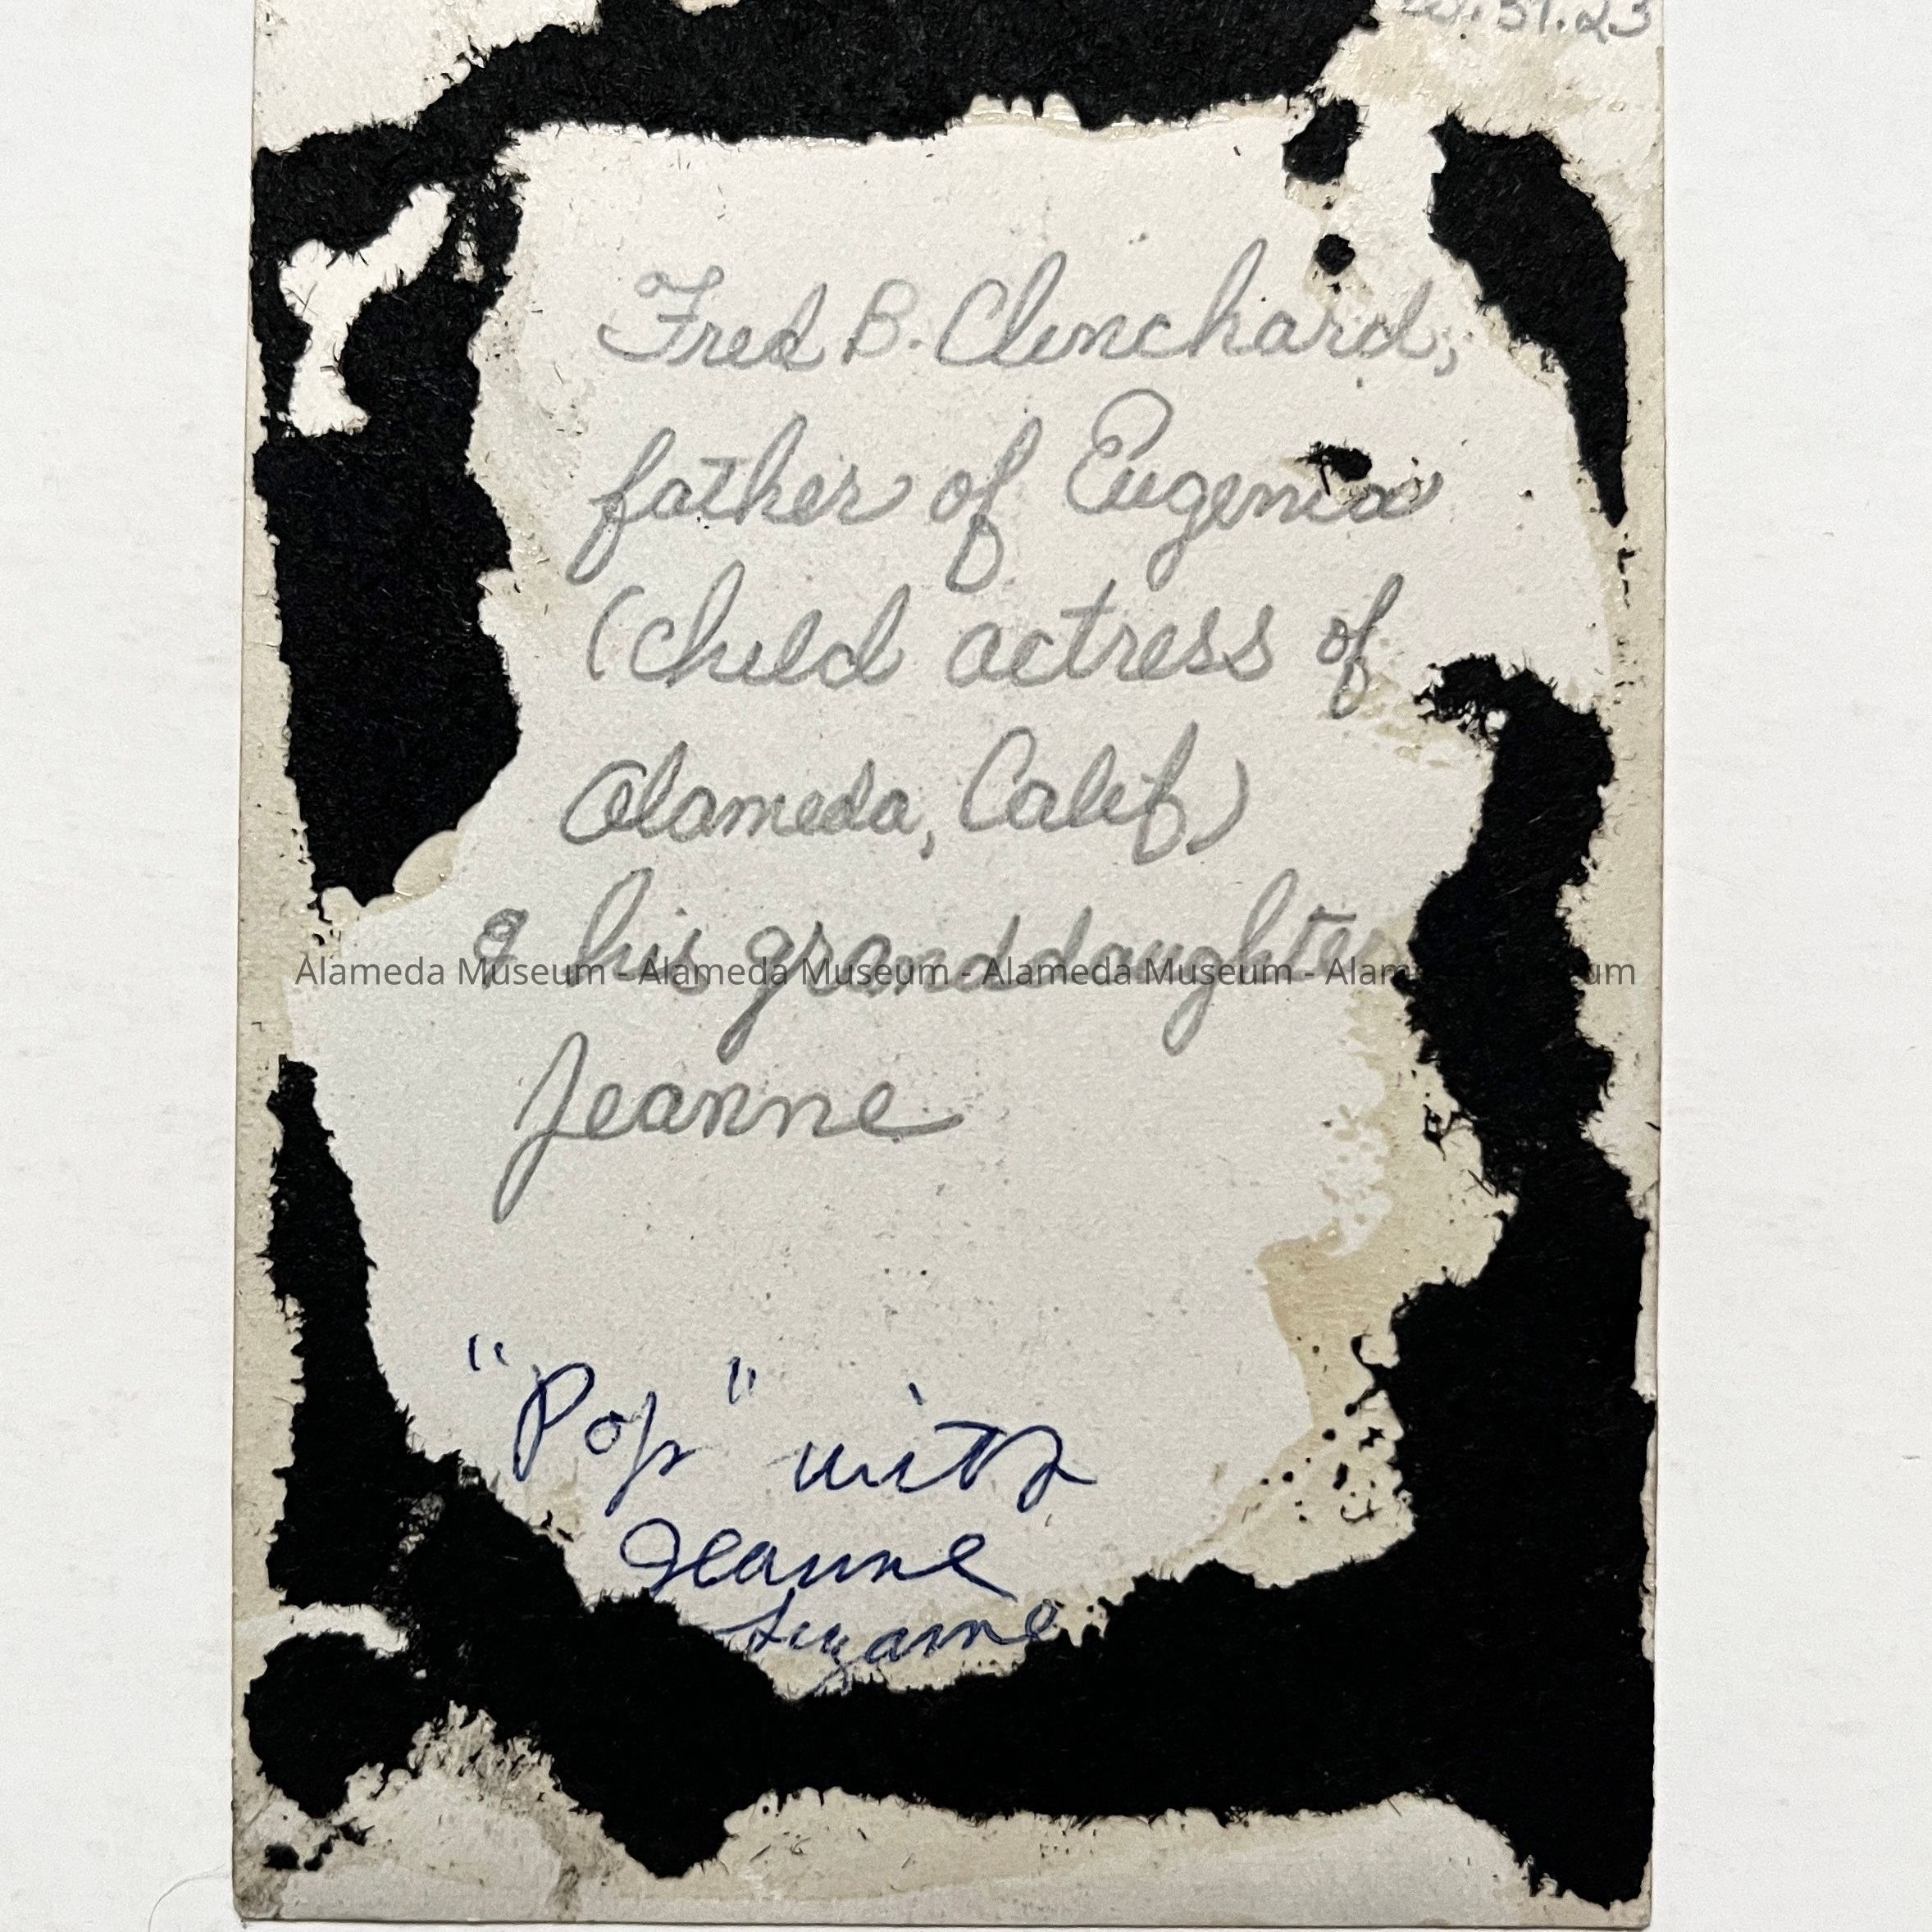 .37.23
Fred B. Clinchard,
father of Eugenia
(child actress of
Alameda, Calif)
& his granddaughter
Alameda Museum - Alameda Museum - Alameda Museum - Alameda Museum
Jeanne
"Pop" with
Jeanne
Suzanne